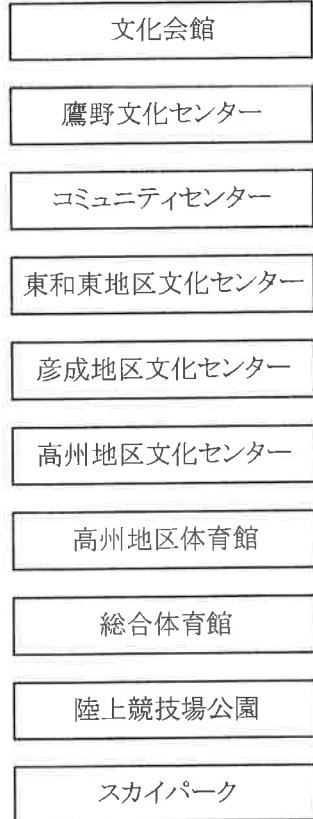 文化会館
鷹野文化センター
コミュニティセンター
東和東地区文化センター
彦成地区文化センター
高州地区文化センター
高州地区体育館
総合体育館
陸上競技場公園
スカイパーク